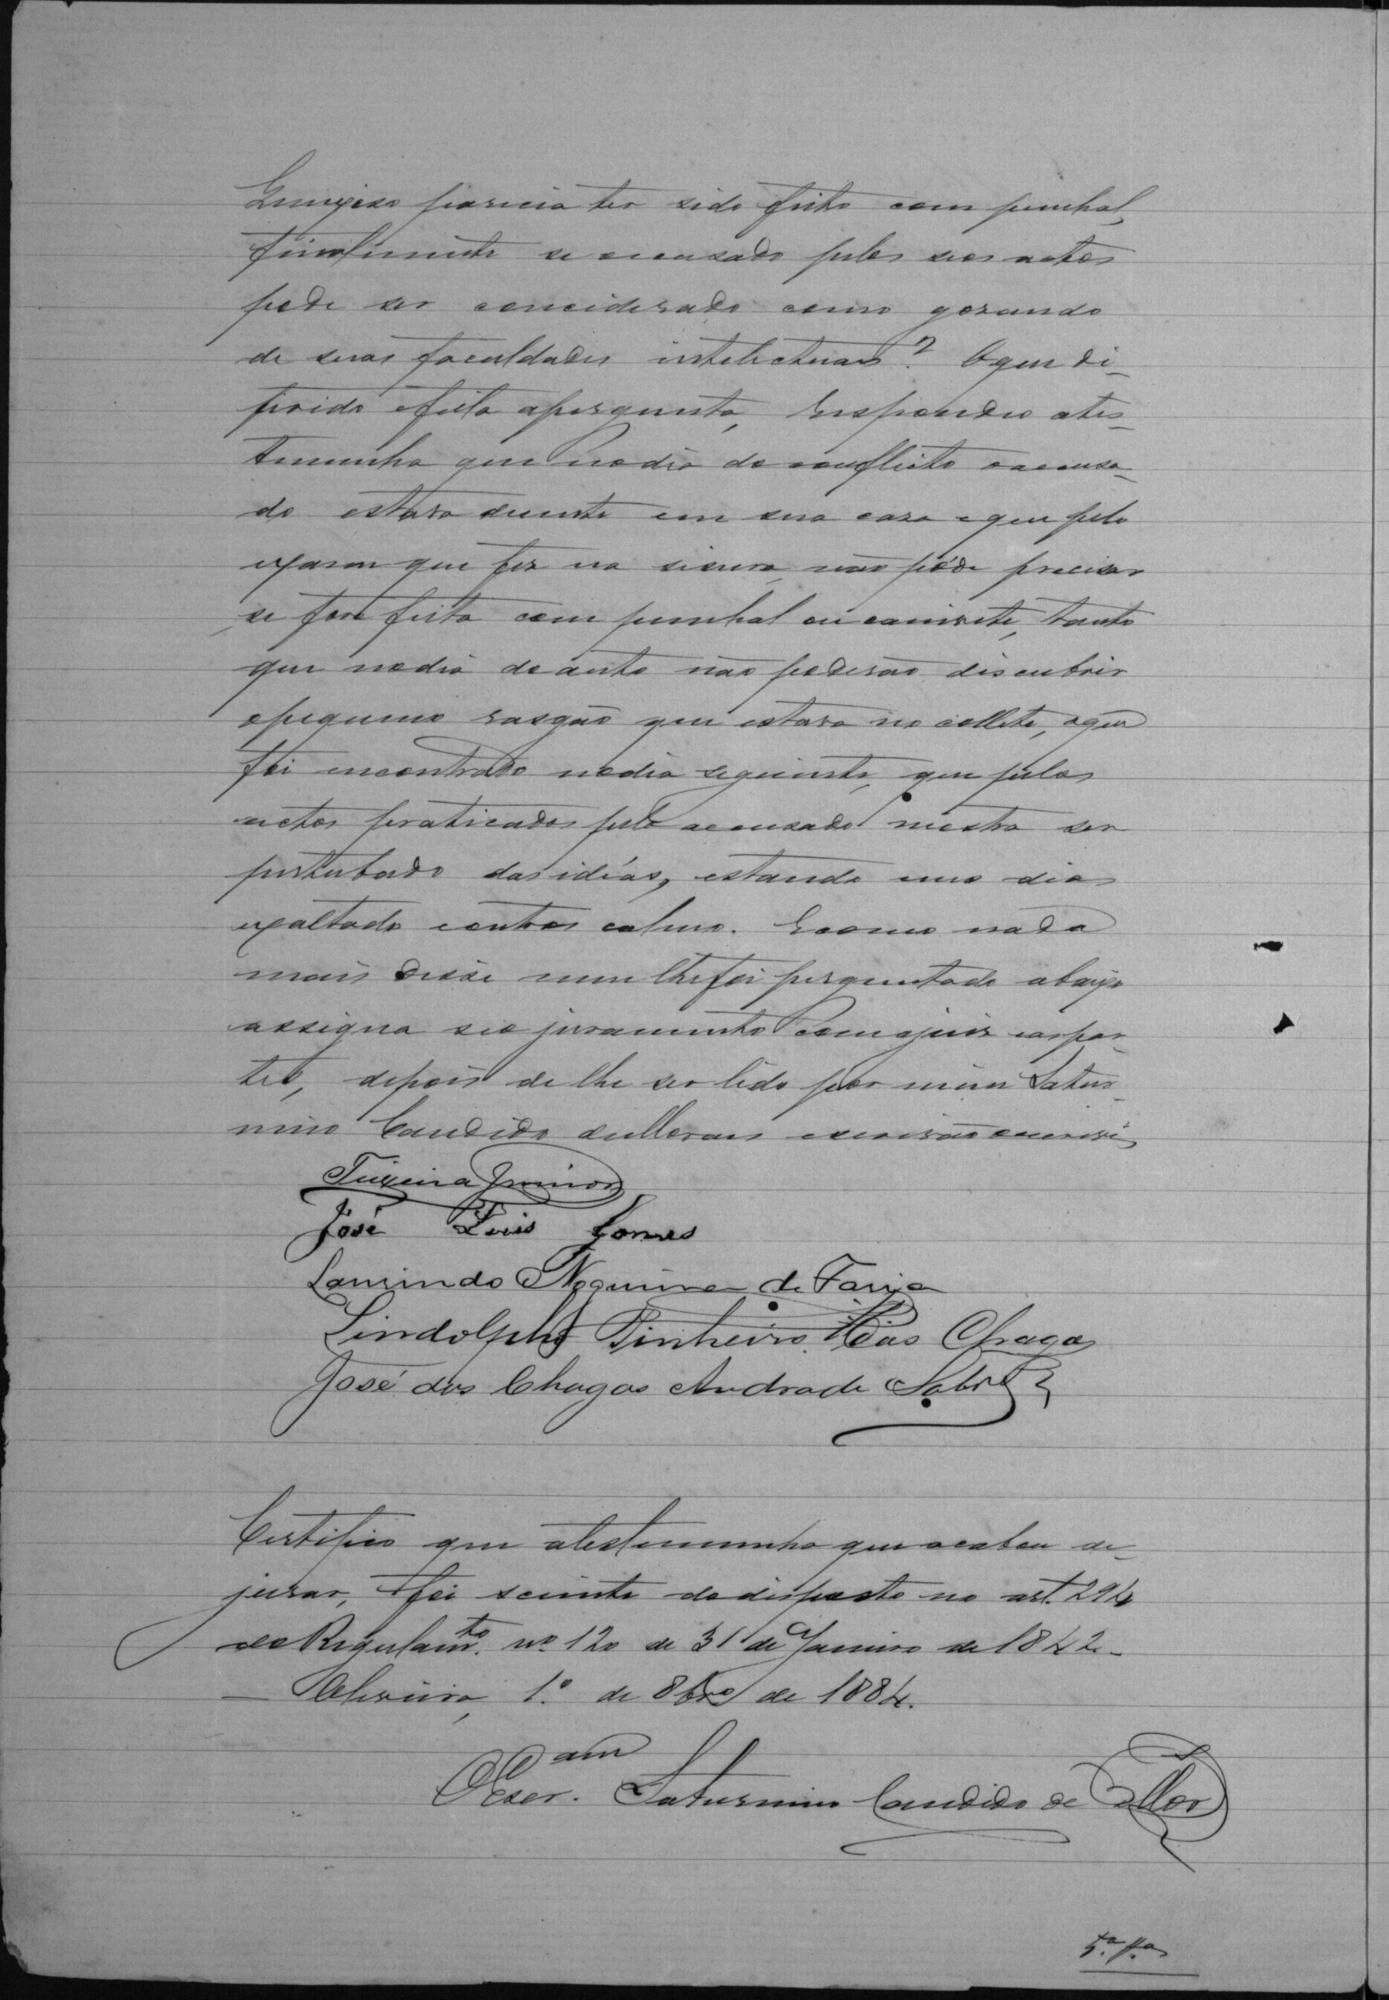 parecia ter sido feito com punhal,
finalmente se accusado pelos seos actos
pode ser conciderado como gosando
de suas faculdades intelectuaes? O que di-
firido e feita a pergunta, respondeo a tes-
temunha que no dia do conflicto o accusa-
do estava doente em sua casa e que pelo
exame que fez na não póde precisar
se fora feita com punhal ou canivete, tanto
que no dia do auto não poderão discubrir
o pequeno rasgão que estava no collete, o que
foi encontrado no dia seguinte, que pelos
actos praticados pelo accusado mostra ser
perturbado das idéas, estando uns dias
exaltado e outros calmo. E como nada
mais disse nem lhe foi perguntado abaixo
assigna seo juramento com o juiz e as par-
tes, depois de lhe ser lido por mim Satur-
nino Candido de Moraes escrivão o escrevi
Teixeira Junior
José Luis Gomes
Laurindo Nogueira de Faria
Lindolpho Pinheiro das Chagas
José das Chagas Andrade Sobr.º
Certifico que a testemunha que acabou de
jurar, foi sciente do disposto no art. 294
do Regulam.to nº 120 de 31 de Janeiro de 1842.
Oliveira, 1.º de 8bro de 1884.
O Escr.am Saturnino Candido de
5.a